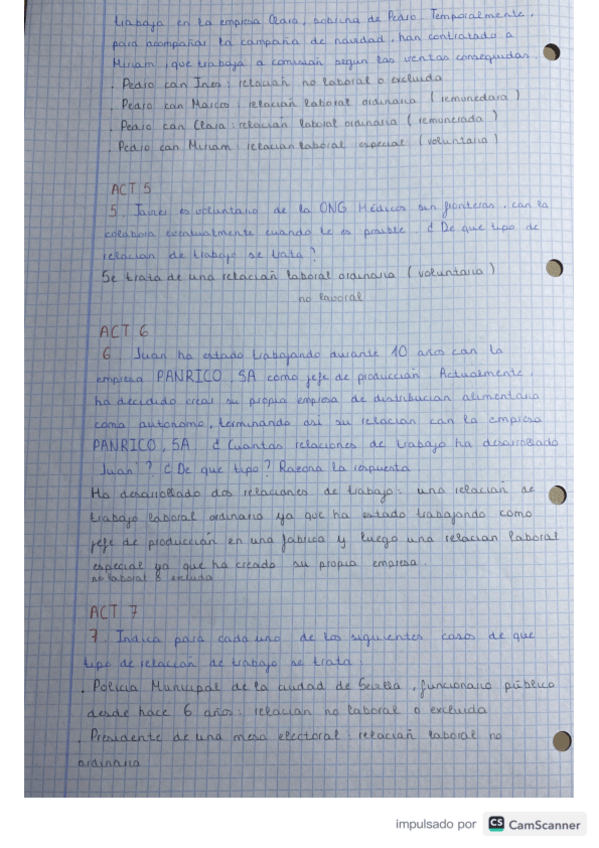 trabaja en la empresa Clara, sobrina de Pedro. Temporalmente,
para acompañar la campaña de navidad, han contratado a
Miriam, que trabaja a comisiañ segun las ventas conseguidas.
. Pedro con Ines: relaciañ no laboral o excluida
. Pedro con Marcos: relaciañ laboral ordinaria (remunedara)
. Pedro con Clara: relaciañ laboral ordinaria (remunerada)
. Pedro con Miriam: relacian laboral especial (voluntaria)
ACT 5
5. Javier es voluntario de la ONG Médicos sin fronteras, con la
colabora eventualmente cuando le es posible. ¿De que tipo de
relacian de trabajo se trata?
Se trata de una relaciañ laboral ordinaria (voluntaria)
no laboral
ACT 6
6. Juan ha estado trabajando durante 10 años con la
empresa PANRICO, SA como jefe de producciañ. Actualmente,
ha decidido crear su propia empresa de distribucian alimentaria
como autonomo, terminando asi su relacian con la empresa
PANRICO, SA ¿Cuantas relaciones de trabajo ha desarrollado
Juan? ¿De que tipo? Razona la respuesta
Ha desarrollado dos relaciones de trabajo: una relaciañ de
trabajo laboral ordinario ya que ha estado trabajando como
jefe de producciañ en una fabrica y luego una relacian laboral
especial ya que ha creado su propia empresa.
no laboral o excluida
ACT 7
7. Indica para cada uno de los siguientes casos de que
tipo de relaciañ de trabajo se trata
. Policia Municipal de la ciudad de Sevilla, funcionario público
desde hace 6 años: relaciañ no laboral o excluida
. Presidente de una mesa electoral: relaciañ laboral no
ordinaria
impulsado por CS CamScanner